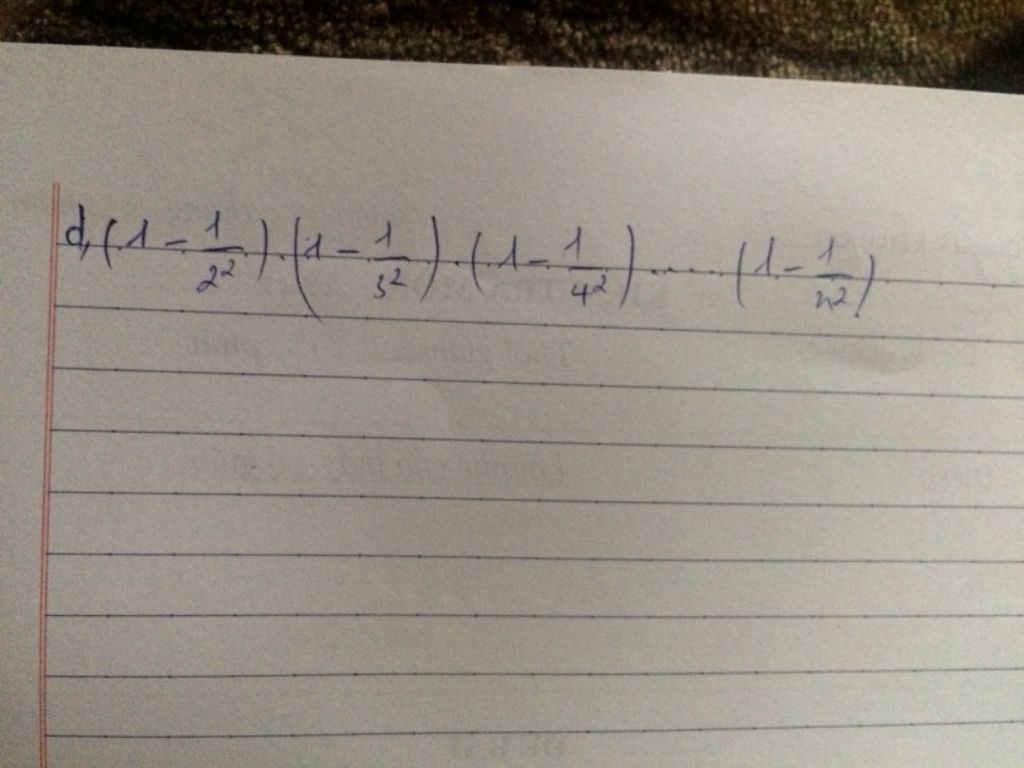 d, (1 - 1/2²) . (1 - 1/3²) . (1 - 1/4²) ...... (1 - 1/n²)